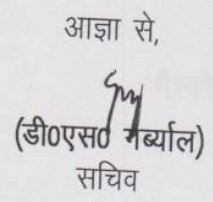 आज्ञा से,
(डी0एस0 गर्ब्याल)
सचिव